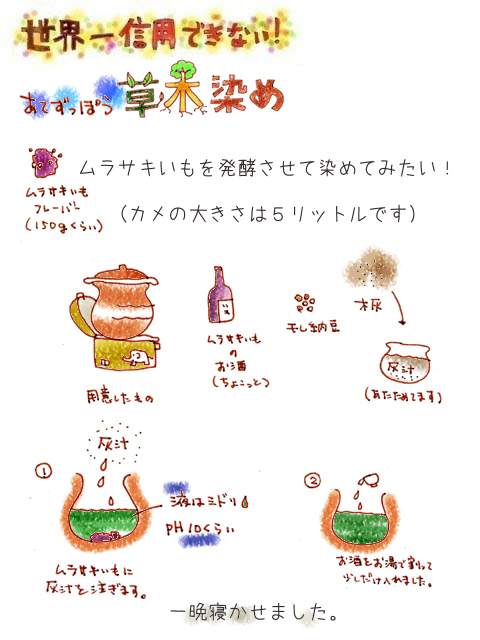 世界一信用できない!
あてずっぽう草木染め
ムラサキいもを発酵させて染めてみたい!
ムラサキいも
フレーバー
(150gくらい)
(カメの大きさは5リットルです)
用意したもの
ムラサキいも
の
お酒
(ちょこっと)
干し納豆
木灰
灰汁
(あたためてます)
①
灰汁
液はミドリ
pH10くらい
ムラサキいもに
灰汁を注ぎます。
②
お酒をお湯で割って
少しだけ入れました。
一晩寝かせました。